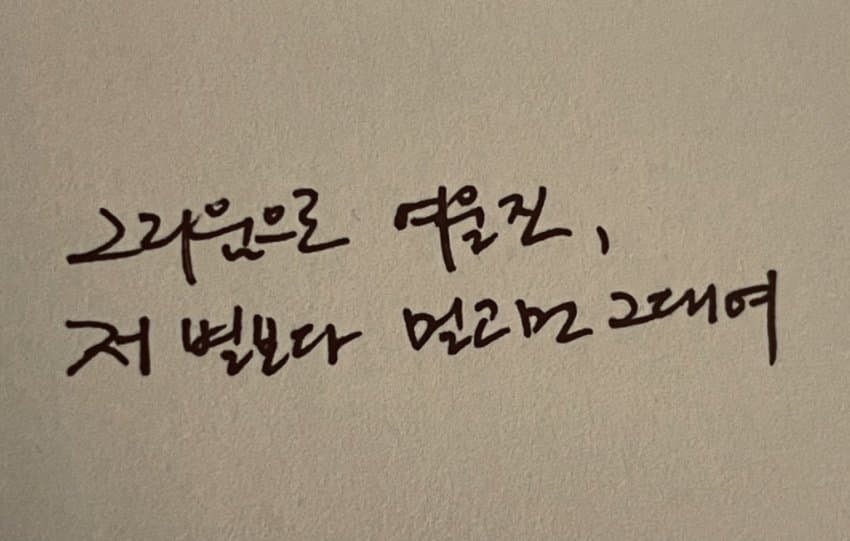 그리움으로 여울진,
저 별보다 멀고먼 그대여